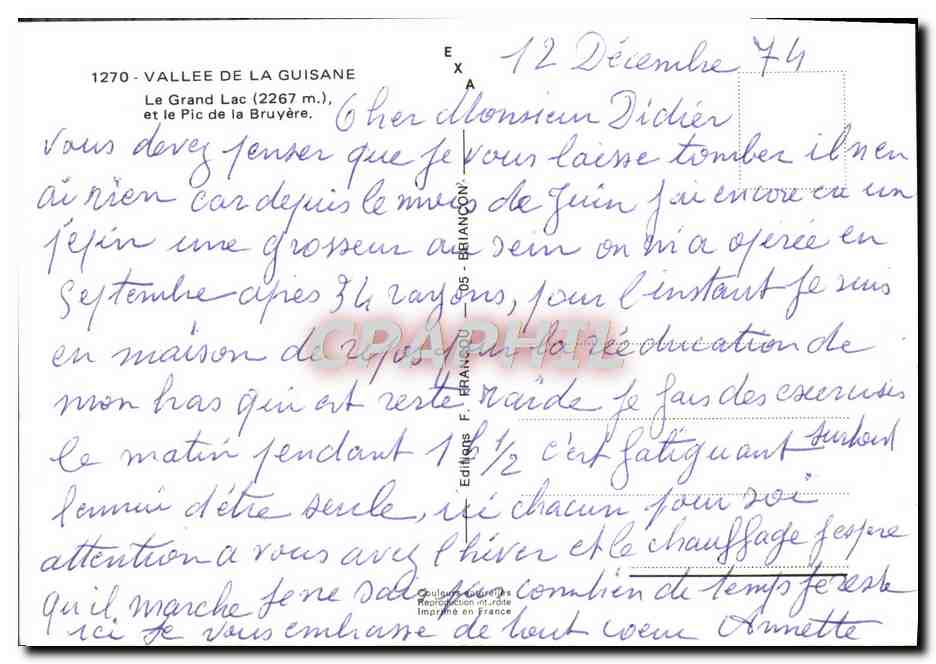 12 Décembre 74
E
X
A
1270 - VALLEE DE LA GUISANE
Le Grand Lac (2267 m.),
et le Pic de la Bruyère.
Cher Monsieur Didier
vous devez penser que je vous laisse tomber il n'en
ai rien car depuis le mois de Juin j'ai encore eu un
pépin une grosseur au sein on m'a opérée en
Septembre après 34 rayons, pour l'instant je suis
en maison de repos pour la rééducation de
mon bras qui est resté raide je fais des exercices
le matin pendant 1h 1/2 c'est fatiguant surtout
l'ennui d'être seule, ici chacun pour soi
attention a vous avez l'hiver et le chauffage j'espre
qu'il marche je ne sais pas combien de temps je reste
ici Je vous embrasse de tout coeur Annette
Editions F. FRANCOU — 05 - BRIANCON
Couleurs naturelles
Reproduction interdite
Imprimé en France
CPAPHIL